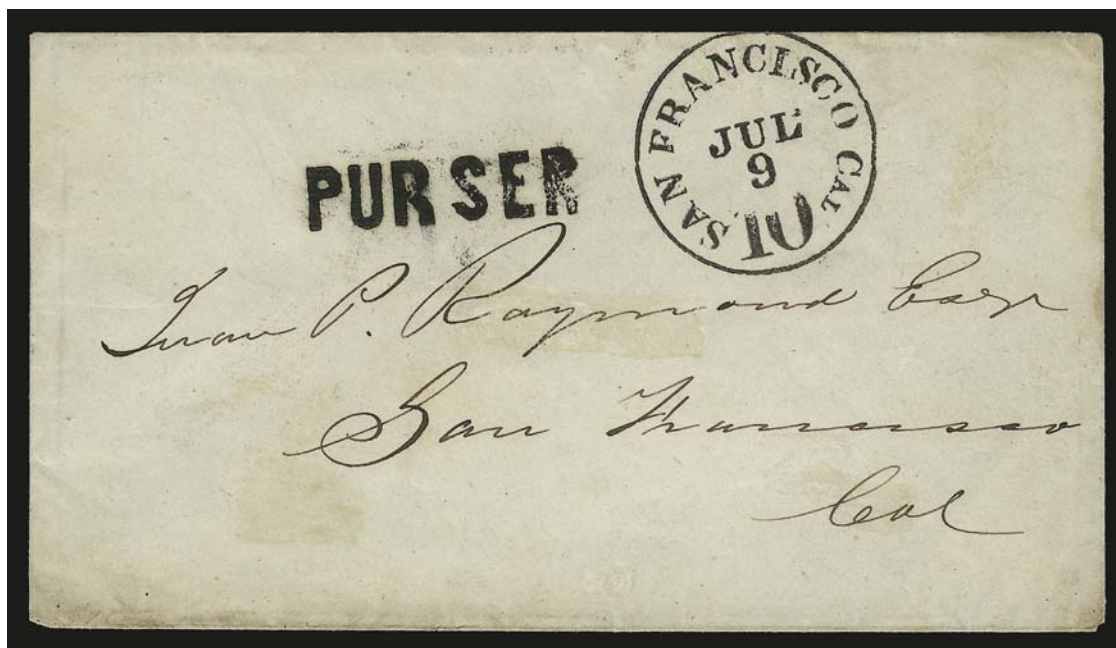 PURSER
SAN FRANCISCO CAL
JUL
9
10
P. Raymond Esqr
San Francisco
Cal